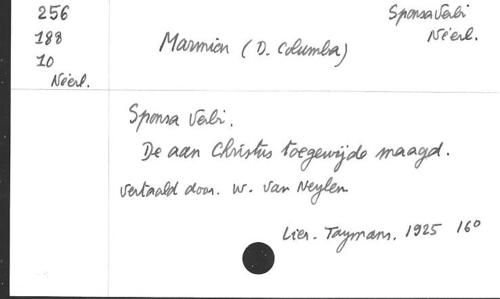 256
188
10
Néerl.
Sponsa Verbi
Néerl.
Marmion (D. Columba)
Sponsa Verbi.
De aan Christus toegewijde maagd.
Vertaald door. W. Van Neylen
Lier. Taymans. 1925 16°